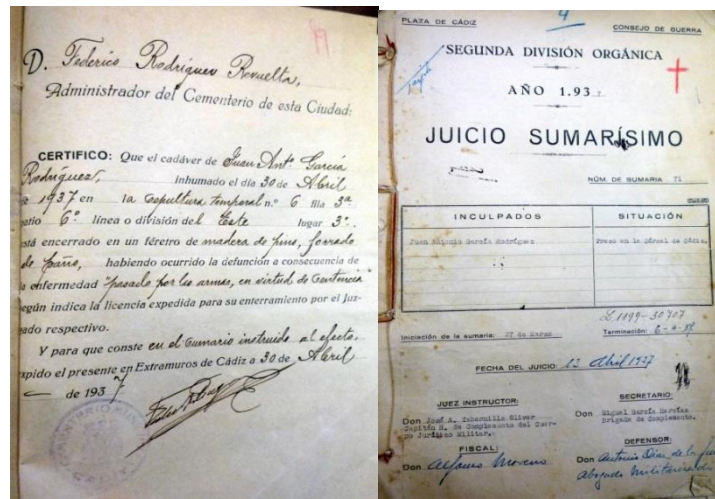 D. Federico Rodriguez Revuelta,
Administrador del Cementerio de esta Ciudad:
CERTIFICO: Que el cadáver de Juan Antº García
Rodriguez, inhumado el día 30 de Abril
de 1937 en la Sepultura Temporal n.º 6 fila 3ª
patio 6º línea o división del Este lugar 3º.
está encerrado en un féretro de madera de pino, forrado
de paño, habiendo ocurrido la defunción a consecuencia de
la enfermedad "pasado por las armas, en virtud de Sentencia
según indica la licencia expedida para su enterramiento por el Juz-
gado respectivo.
Y para que conste en el Sumario instruido al efecto,
expido el presente en Extramuros de Cádiz a 30 de Abril
de 1937
PLAZA DE CÁDIZ
4
CONSEJO DE GUERRA
SEGUNDA DIVISIÓN ORGÁNICA
AÑO 1.937
JUICIO SUMARÍSIMO
NÚM. DE SUMARIA 71
INCULPADOS
SITUACIÓN
Juan Antonio García Rodríguez
Preso en la Cárcel de Cádiz.
L 1199-30707
Iniciación de la sumaria: 27 de Marzo
Terminación: 6-4-37
FECHA DEL JUICIO: 13 Abril 1937
JUEZ INSTRUCTOR:
Don José A. Tabernilla Oliver
Capitán H. de Complemento del Cuer-
po Jurídico Militar.
FISCAL:
Don Alfonso Moreno
SECRETARIO:
Don Miguel García
Brigada de Complemento.
DEFENSOR:
Don Antonio Díaz de la
Abogado